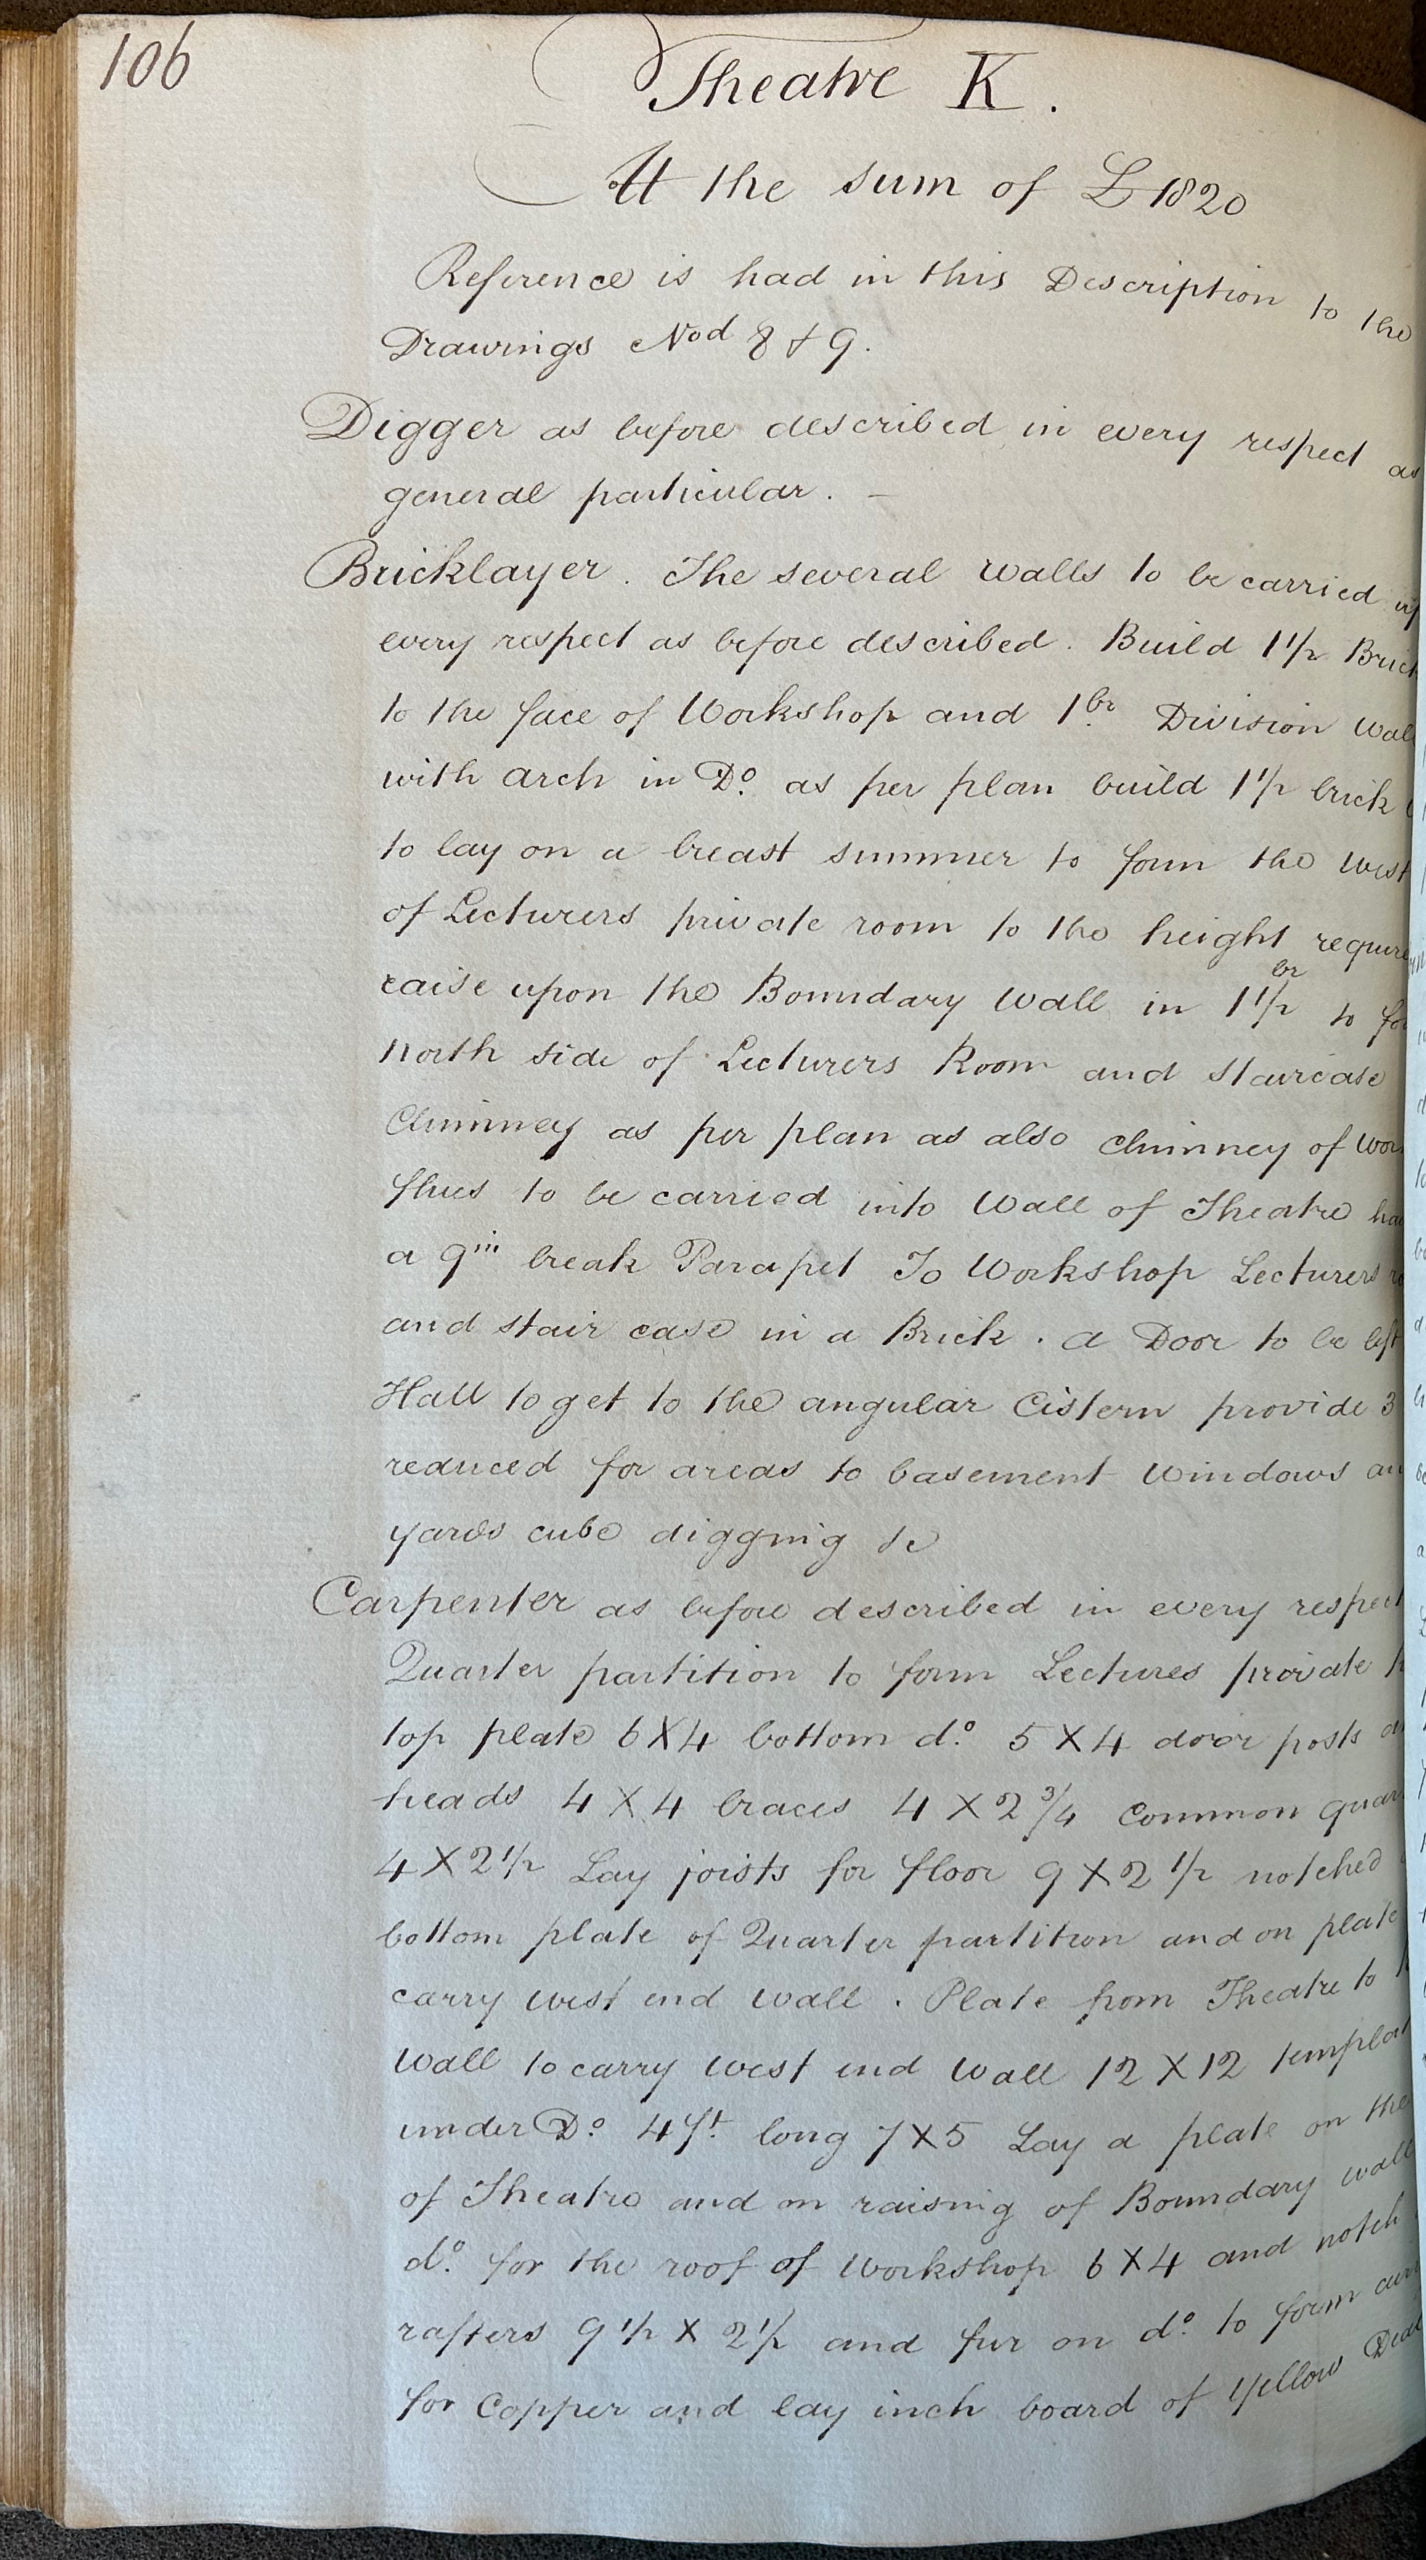 106
Theatre K.
At the sum of £1820
Reference is had in this Description to the
Drawings Nod 8 & 9.
Digger as before described in every respect as
general particular. –
Bricklayer. The several walls to be carried up
every respect as before described. Build 1 1/2 Brick
to the face of Workshop and 1 br Division wall
with arch in Do. as per plan build 1 1/2 brick
to lay on a breast summer to form the west
of Lecturers private room to the height
raise upon the Boundary Wall in 1 1/2 br to
North side of Lecturers Room and staircase
Chimney as per plan as also chimney of
flues to be carried into Wall of Theatre
a 9in break Parapet To Workshop Lecturers
and stair case in a Brick. a Door to be left
Hall to get to the angular Cistern provide 3
reduced for areas to basement Windows
yards cube digging &c
Carpenter as before described in every respect
Quarter partition to form Lectures private
top plate 6 X 4 bottom do. 5 X 4 door posts
heads 4 X 4 braces 4 X 2 3/4 common
4 X 2 1/2 Lay joists for floor 9 X 2 1/2 notched
bottom plate of Quarter partition and on plate
carry west end wall. Plate from Theatre to
Wall to carry west end Wall 12 X 12
under Do. 4 ft. long 7 X 5 Lay a plate on the
of Theatre and on raising of Boundary wall
do. for the roof of Workshop 6 X 4 and notch
rafters 9 1/2 X 2 1/2 and fur on do. to form
for Copper and lay inch board of Yellow Deal